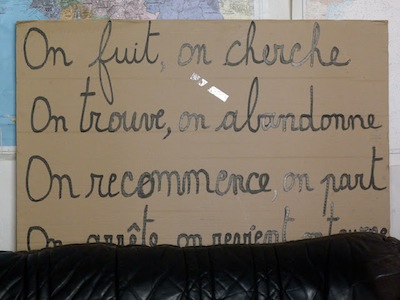 On fuit, on cherche
On trouve, on abandonne
On recommence, on part
On arrête, on revient, on tourne